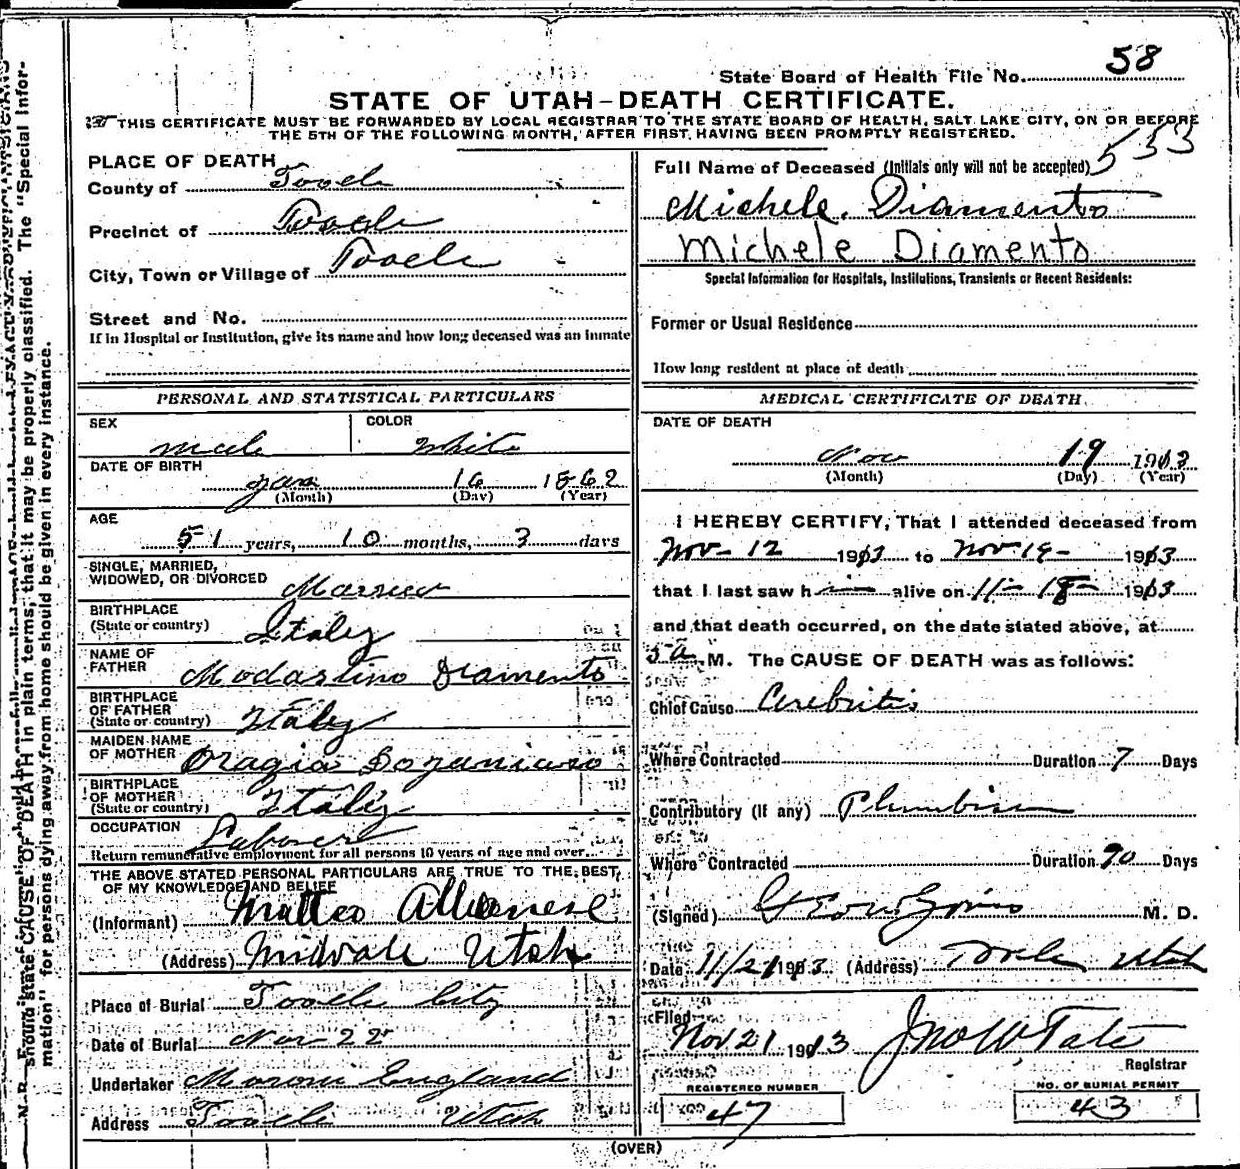 State Board of Health File No. 58
STATE OF UTAH-DEATH CERTIFICATE.
THIS CERTIFICATE MUST BE FORWARDED BY LOCAL REGISTRAR TO THE STATE BOARD OF HEALTH, SALT LAKE CITY, ON OR BEFORE
THE 5TH OF THE FOLLOWING MONTH, AFTER FIRST HAVING BEEN PROMPTLY REGISTERED.
533
PLACE OF DEATH
County of Tooele
Precinct of Tooele
City, Town or Village of Tooele
Street and No.
If in Hospital or Institution, give its name and how long deceased was an inmate
Full Name of Deceased (Initials only will not be accepted)
Michele Diamento
Michele Diamento
Special Information for Hospitals, Institutions, Transients or Recent Residents:
Former or Usual Residence
How long resident at place of death
PERSONAL AND STATISTICAL PARTICULARS
SEX male COLOR white
DATE OF BIRTH
Jan 16 1862
(Month) (Day) (Year)
AGE
51 years, 10 months, 3 days
SINGLE, MARRIED,
WIDOWED, OR DIVORCED Married
BIRTHPLACE
(State or country) Italy
NAME OF
FATHER Modastino Diamento
BIRTHPLACE
OF FATHER
(State or country) Italy
MAIDEN NAME
OF MOTHER Oragia
BIRTHPLACE
OF MOTHER
(State or country) Italy
OCCUPATION Laborer
Return remunerative employment for all persons 10 years of age and over
THE ABOVE STATED PERSONAL PARTICULARS ARE TRUE TO THE BEST
OF MY KNOWLEDGE AND BELIEF
(Informant) Matteo Albanese
(Address) Midvale Utah
Place of Burial Tooele City
Date of Burial Nov 22
Undertaker Moroni England
Address Tooele Utah
MEDICAL CERTIFICATE OF DEATH
DATE OF DEATH
Nov 19 1913
(Month) (Day) (Year)
I HEREBY CERTIFY, That I attended deceased from
Nov- 12 1913 to Nov 19- 1913
that I last saw him alive on 11- 18- 1913
and that death occurred, on the date stated above, at
5 a M. The CAUSE OF DEATH was as follows:
Chief Cause Cerebritis
Where Contracted Duration 7 Days
Contributory (If any) Plumbism
Where Contracted Duration 90 Days
(Signed) M. D.
Date 11/21 1913 (Address) Tooele Utah
Filed
Nov 21 1913 Jno W Tate
Registrar
REGISTERED NUMBER
47
NO. OF BURIAL PERMIT
43
(OVER)
should state CAUSE OF DEATH in plain terms, that it may be properly classified. The "Special Infor-
mation" for persons dying away from home should be given in every instance.